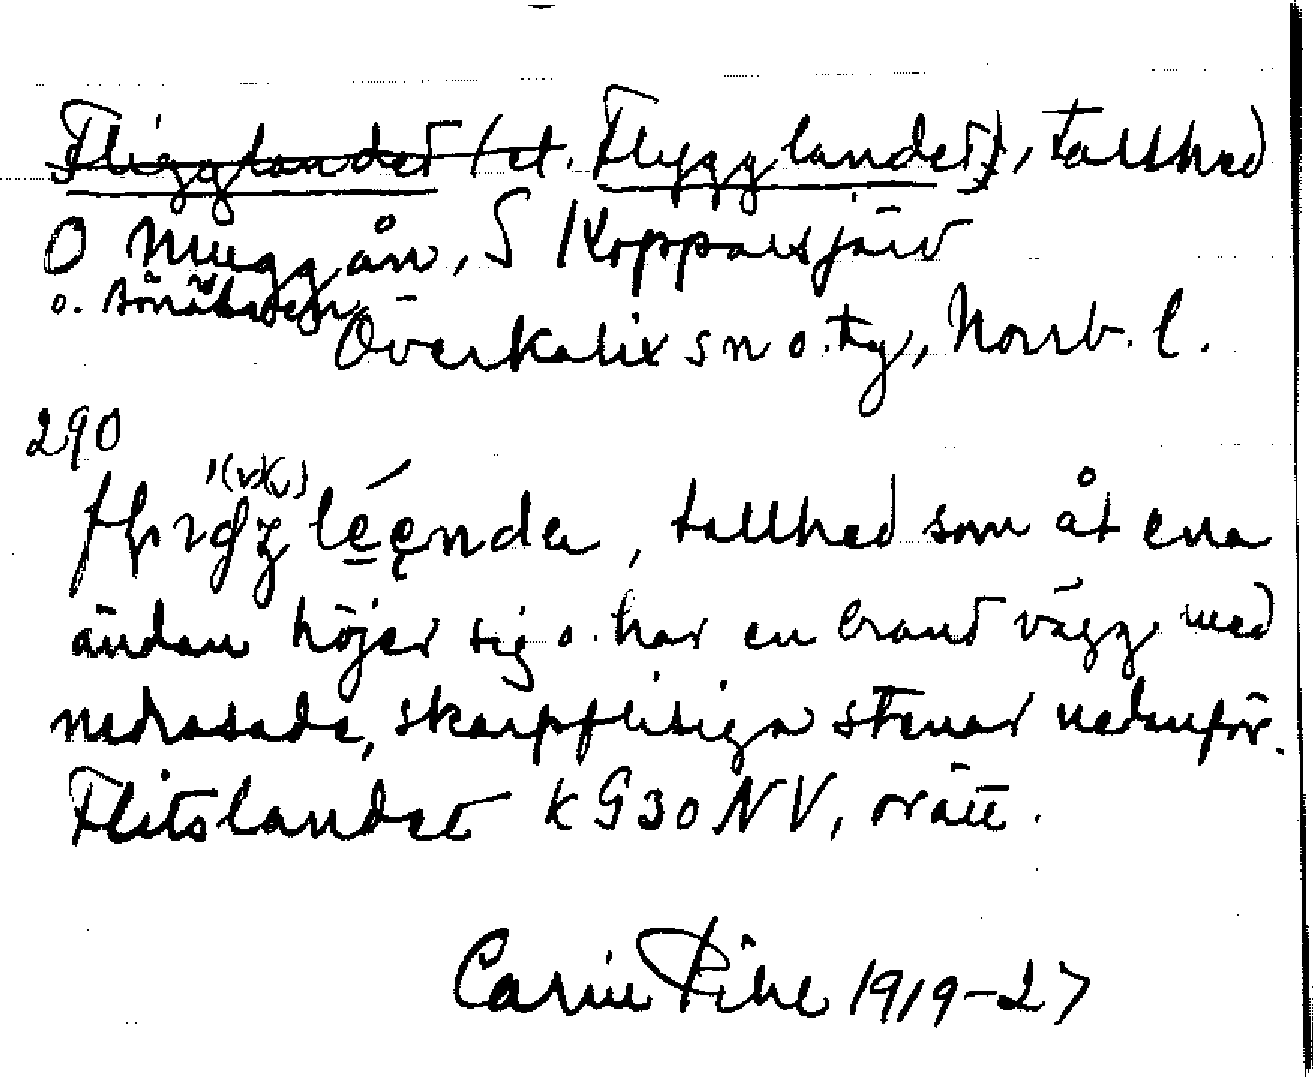 Fligglandet (el. Flygglandet), tallhed
O Muggån, S Koppartsjärv
o.
Överkalix sn o. tg, Norrb. l.
290
tallhed som åt ena
ändan höjer sig o. har en brant vägg med
nedrasade, skarpflisiga stenar nedanför.
Flitslandet k G30NV, orätt.
Carin Pihl 1919-27